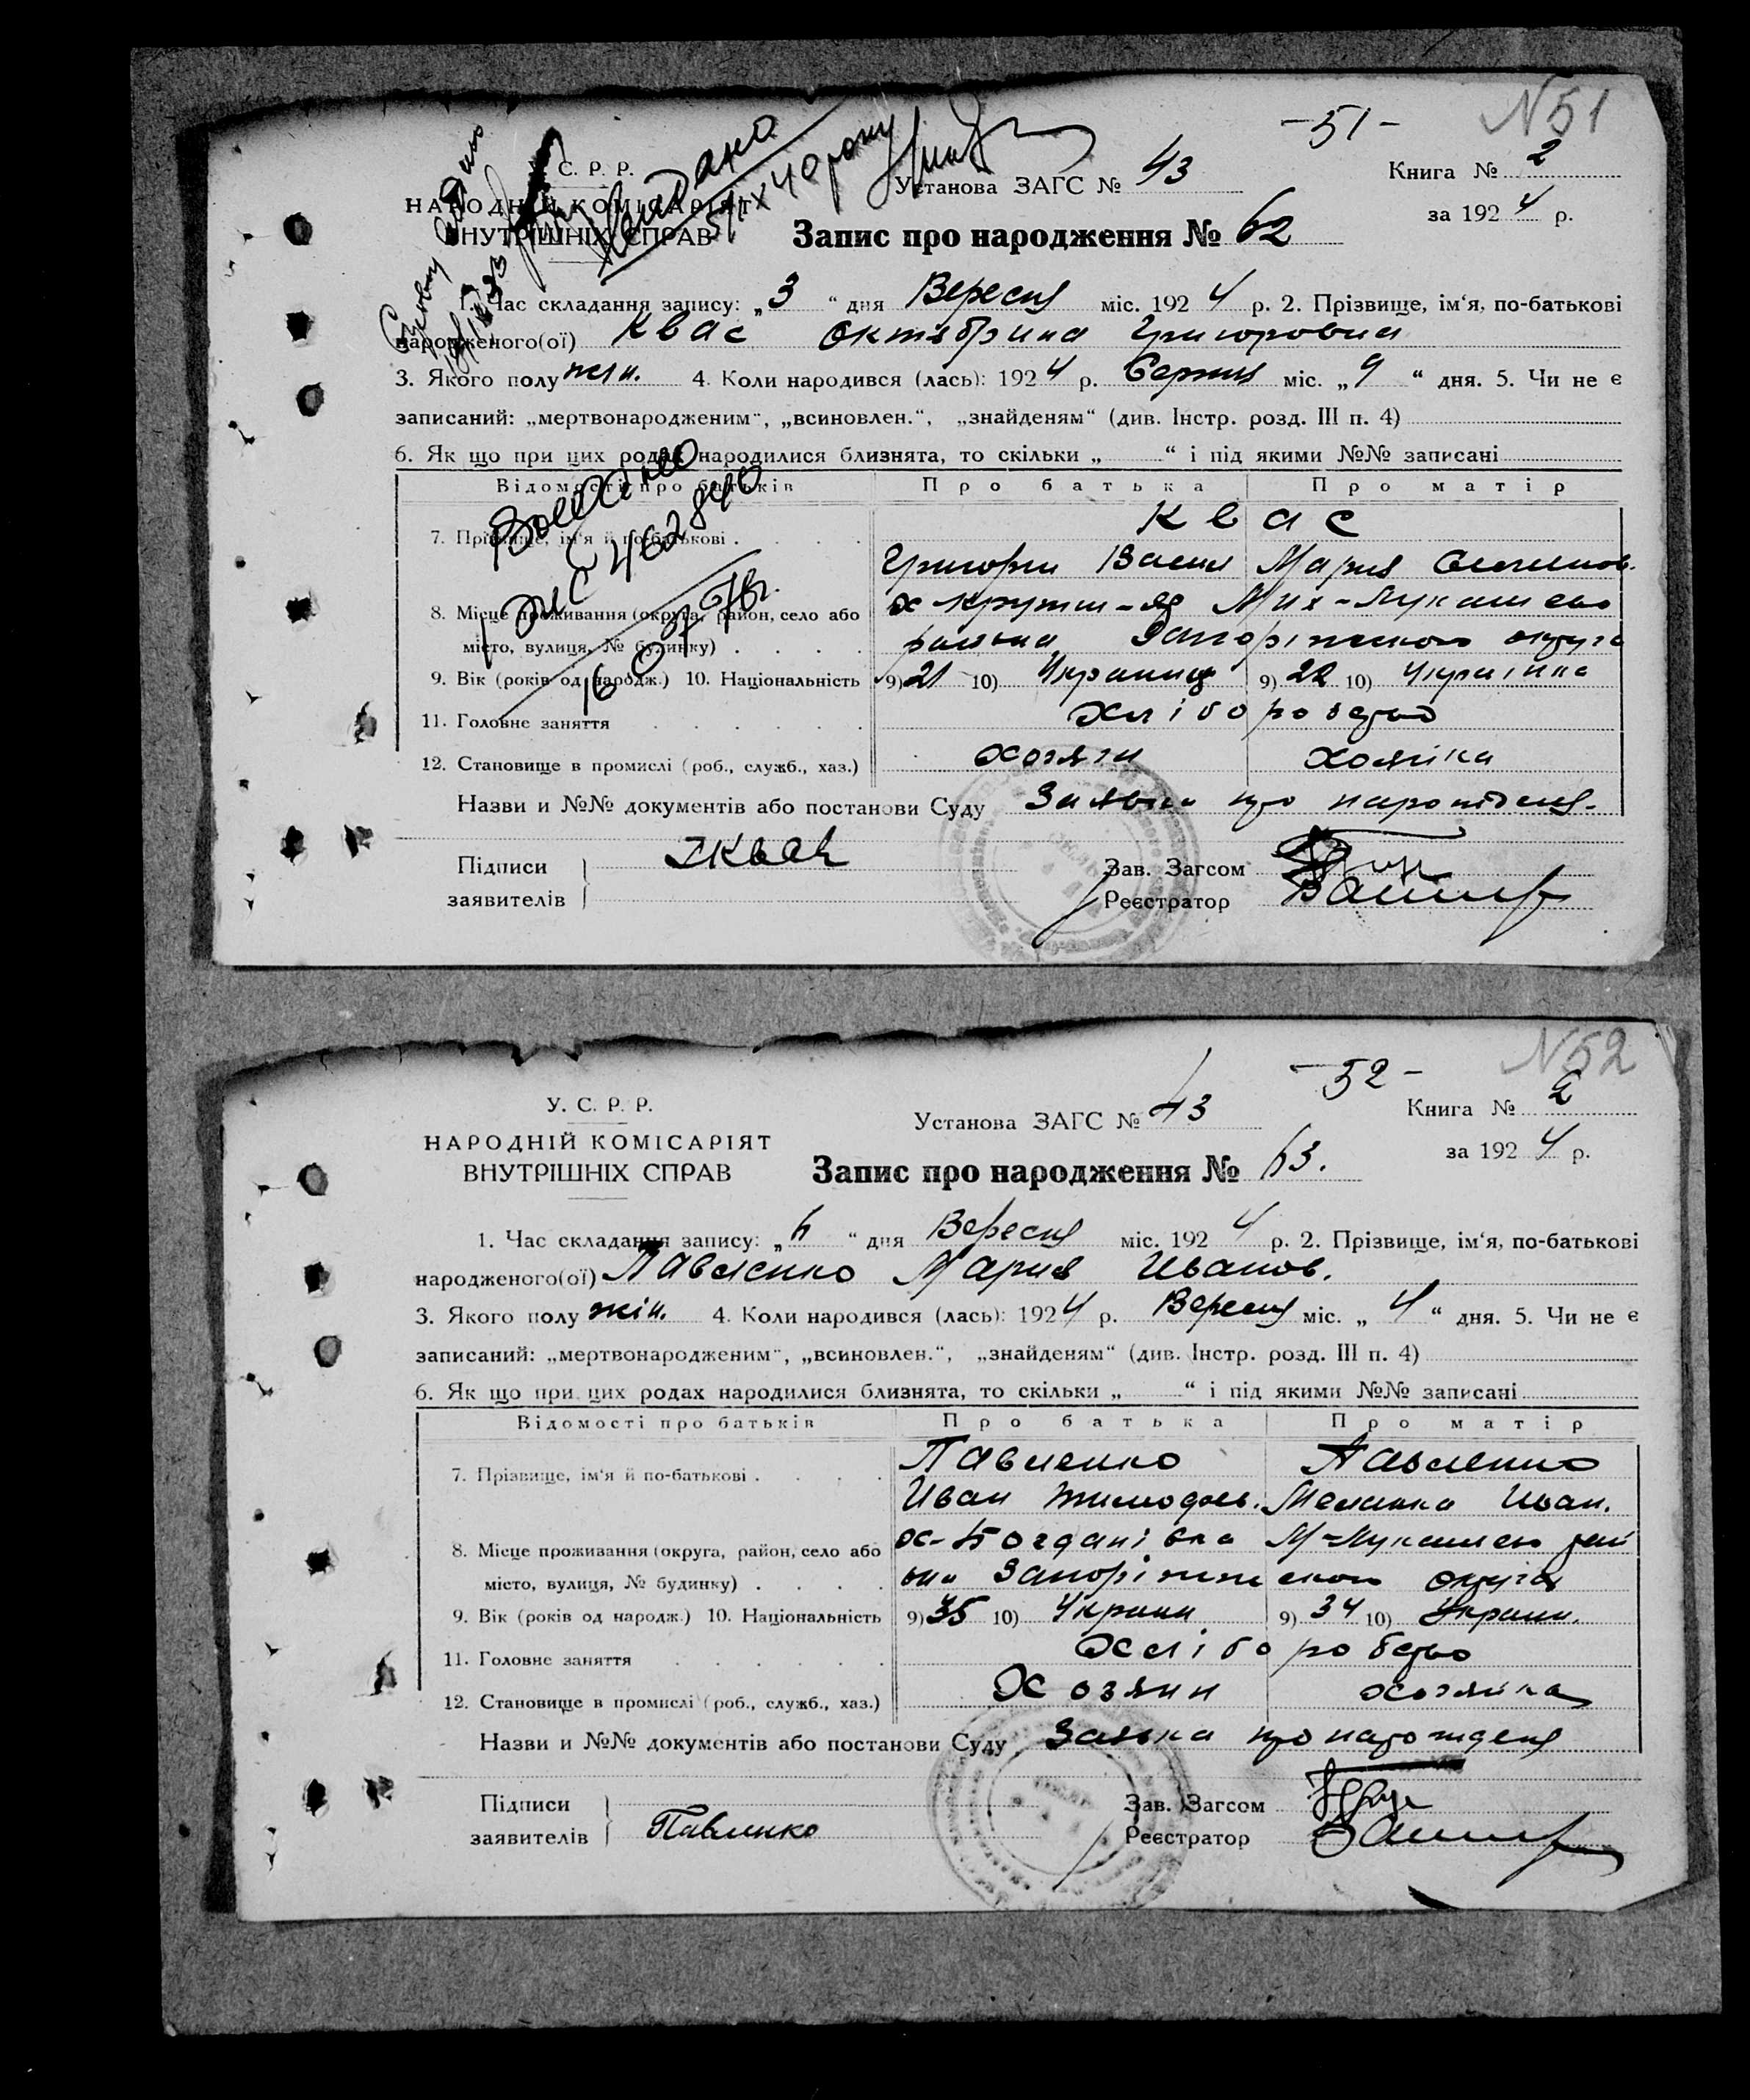 -51-
N51
С. Р. Р.
НАРОДНІЙ КОМІСАРІЯТ
ВНУТРІШНІХ СПРАВ
Установа ЗАГС № 43
Книга № 2
за 1924 р.
Запис про народження № 62
1. Час складання запису: „3“ дня Вересня міс. 1924 р. 2. Прізвище, ім‘я, по-батькові
народженого(ої) Квас Октябрина Григоровна
3. Якого полу жін. 4. Коли народився (лась): 1924 р. Серпня міс. „9“ дня. 5. Чи не є
записаний: „мертвонародженим“, „всиновлен.“, „знайденям“ (див. Інстр. розд. III п. 4)
6. Як що при цих родах народилися близнята, то скільки „ “ і під якими №№ записані
Відомості про батьків Про батька Про матір
Квас
7. Прізвище, ім‘я й по-батькові
Григори Васил Мария
8. Місце проживання (округа, район, село або
Мих-Лукашево
місто, вулиця, № будинку) Запоріжського округа
9. Вік (років од народж.) 10. Національність 9) 21 10) Украинец 9) 22 10) Україінка
11. Головне заняття Хліборобство
12. Становище в промислі (роб., служб., хаз.) хозяин хозяіка
Назви и №№ документів або постанови Суду Заявка про народженя
Підписи
заявителів
Квас
Зав. Загсом
Реєстратор
Видано
С 462840
-52-
N52
У. С. Р. Р.
НАРОДНІЙ КОМІСАРІЯТ
ВНУТРІШНІХ СПРАВ
Установа ЗАГС № 43
Книга № 2
за 1924 р.
Запис про народження № 63.
1. Час складання запису: „6“ дня Вересня міс. 1924 р. 2. Прізвище, ім‘я, по-батькові
народженого(ої) Павленко Мария Иванов.
3. Якого полу жін. 4. Коли народився (лась): 1924 р. Вересня міс. „4“ дня. 5. Чи не є
записаний: „мертвонародженим“, „всиновлен.“, „знайденям“ (див. Інстр. розд. III п. 4)
6. Як що при цих родах народилися близнята, то скільки „ “ і під якими №№ записані
Відомості про батьків Про батька Про матір
Павленко Павленко
7. Прізвище, ім‘я й по-батькові
Иван Тимофев. Меланка Иван.
8. Місце проживання (округа, район, село або х-Богданівка М-Лукашево рай
місто, вулиця, № будинку) она Запоріжжского округа
9. Вік (років од народж.) 10. Національність 9) 35 10) Украин 9) 34 10) Украин.
11. Головне заняття Хліборобство
12. Становище в промислі (роб., служб., хаз.) Хозяин хозяіка
Назви и №№ документів або постанови Суду Заявка про народженя
Підписи
заявителів
Павленко
Зав. Загсом
Реєстратор